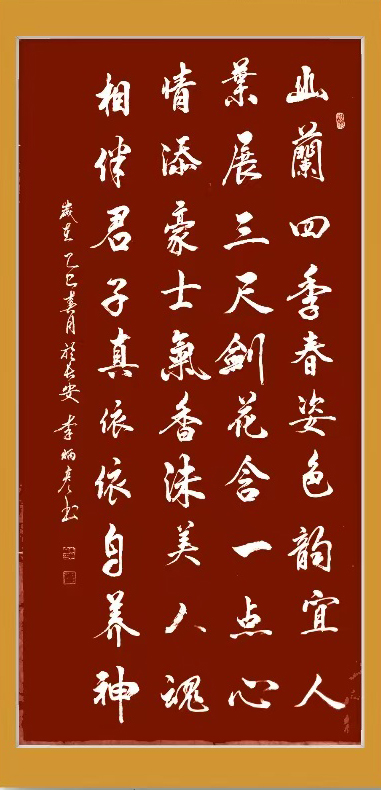 幽蘭四季春姿色韵宜人
葉展三尺劍花含一点心
情添豪士氣香沫美人魂
相伴君子真依依自养神
歲在乙巳春月於长安 李炳彦书